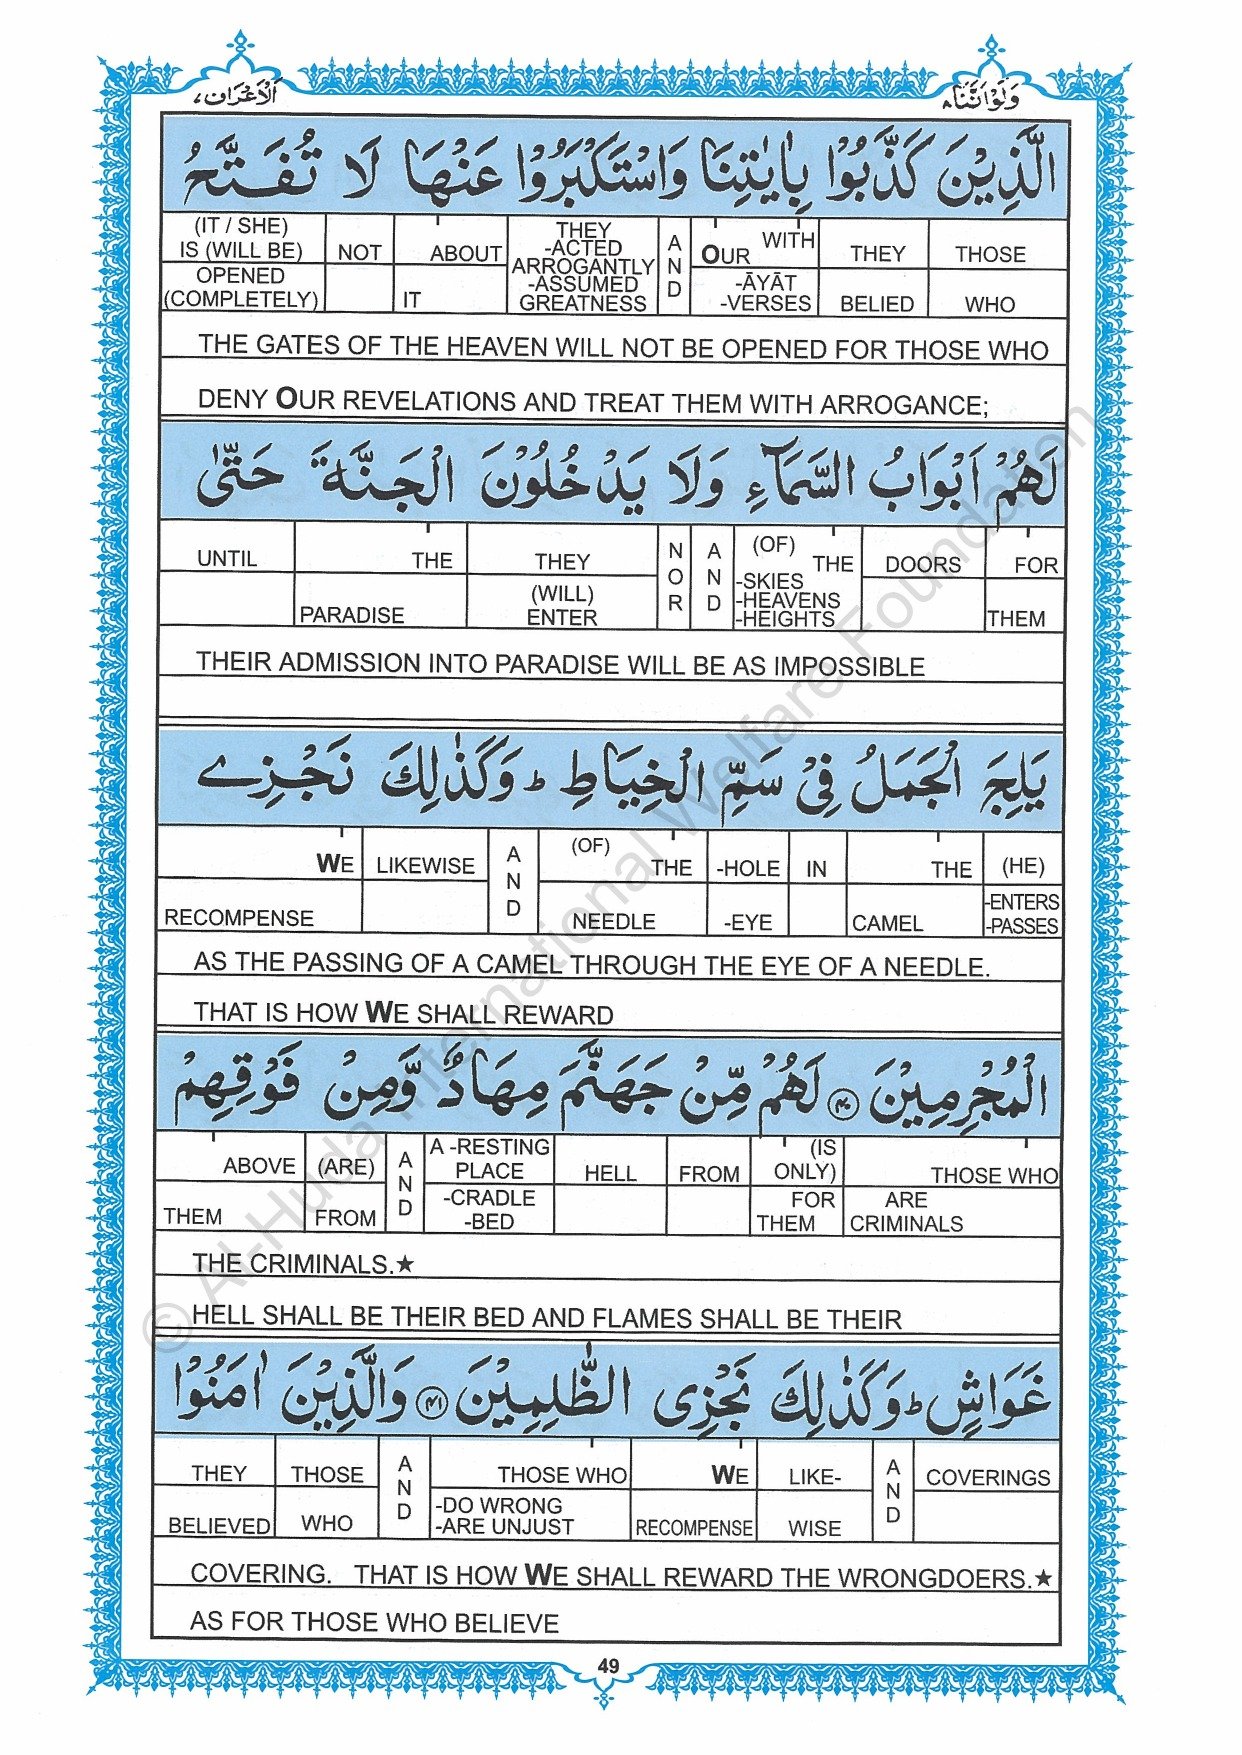 وَلَوْ اَنَّنَا ۸
اَلْاَعْرَاف ۷
الَّذِيْنَ كَذَّبُوْا بِاٰيٰتِنَا وَاسْتَكْبَرُوْا عَنْهَا لَا تُفَتَّحُ
THOSE WHO
THEY BELIED
WITH OUR -ĀYĀT -VERSES
AND
THEY -ACTED ARROGANTLY -ASSUMED GREATNESS
ABOUT IT
NOT
(IT / SHE) IS (WILL BE) OPENED (COMPLETELY)
THE GATES OF THE HEAVEN WILL NOT BE OPENED FOR THOSE WHO
DENY OUR REVELATIONS AND TREAT THEM WITH ARROGANCE;
لَهُمْ اَبْوَابُ السَّمَآءِ وَلَا يَدْخُلُوْنَ الْجَنَّةَ حَتّٰى
FOR THEM
DOORS
(OF) THE -SKIES -HEAVENS -HEIGHTS
AND
NOR
THEY (WILL) ENTER
THE PARADISE
UNTIL
THEIR ADMISSION INTO PARADISE WILL BE AS IMPOSSIBLE
يَلِجَ الْجَمَلُ فِيْ سَمِّ الْخِيَاطِ ؕ وَكَذٰلِكَ نَجْزِي
(HE) -ENTERS -PASSES
THE CAMEL
IN
-HOLE -EYE
(OF) THE NEEDLE
AND
LIKEWISE
WE RECOMPENSE
AS THE PASSING OF A CAMEL THROUGH THE EYE OF A NEEDLE.
THAT IS HOW WE SHALL REWARD
الْمُجْرِمِيْنَ ۴۰ لَهُمْ مِّنْ جَهَنَّمَ مِهَادٌ وَّمِنْ فَوْقِهِمْ
THOSE WHO ARE CRIMINALS
(IS ONLY) FOR THEM
FROM
HELL
A -RESTING PLACE -CRADLE -BED
AND
(ARE) FROM
ABOVE THEM
THE CRIMINALS.★
HELL SHALL BE THEIR BED AND FLAMES SHALL BE THEIR
غَوَاشٍ ؕ وَكَذٰلِكَ نَجْزِي الظّٰلِمِيْنَ ۴۱ وَالَّذِيْنَ اٰمَنُوْا
COVERINGS
AND
LIKE-WISE
WE RECOMPENSE
THOSE WHO -DO WRONG -ARE UNJUST
AND
THOSE WHO
THEY BELIEVED
COVERING. THAT IS HOW WE SHALL REWARD THE WRONGDOERS.★
AS FOR THOSE WHO BELIEVE
49
© Al-Huda International Welfare Foundation